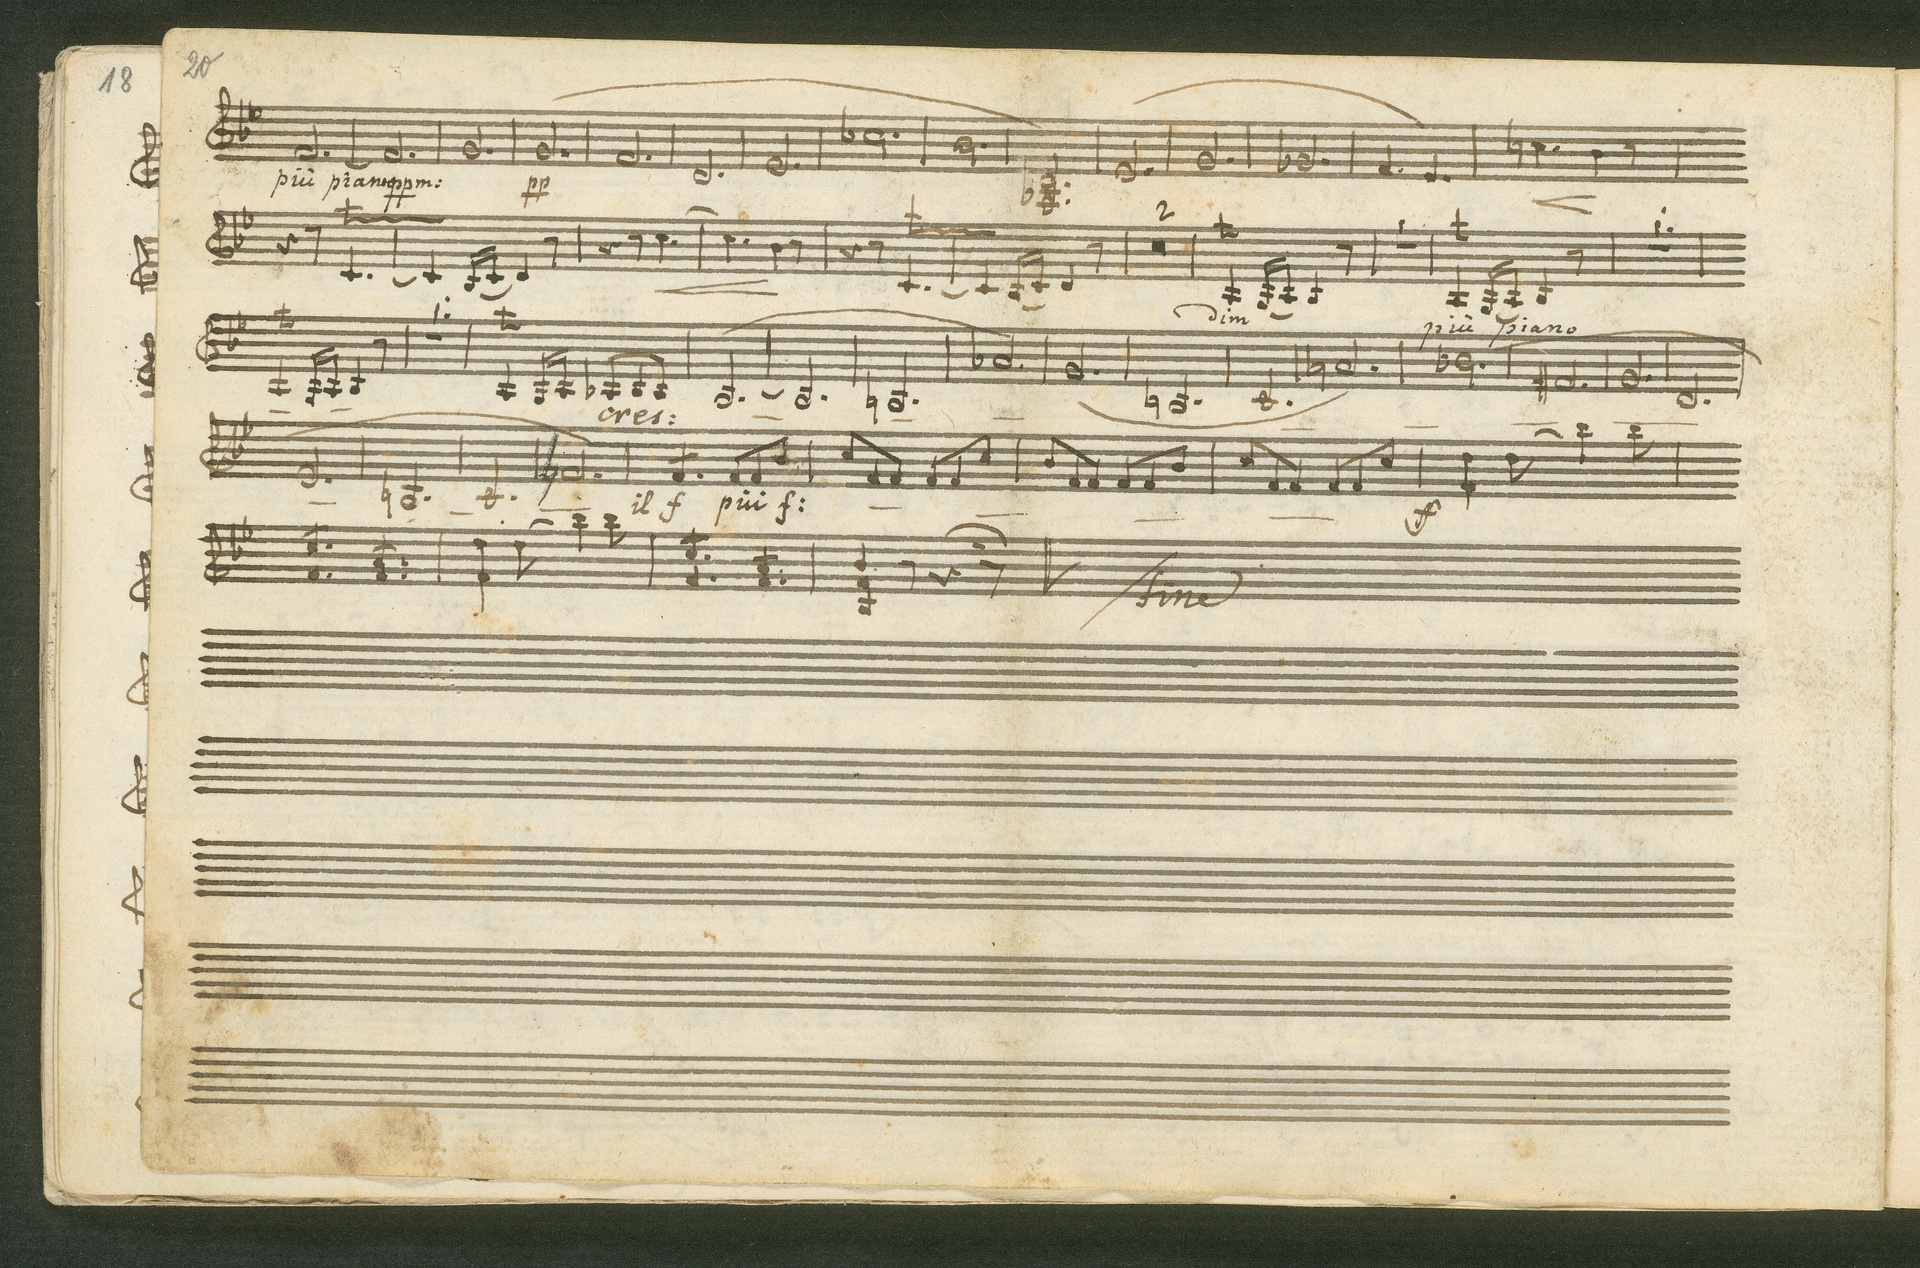 18
20
più piano ppm: pp
2 1. 1.
dim più piano
1.
cres:
il f più f: ff
Fine